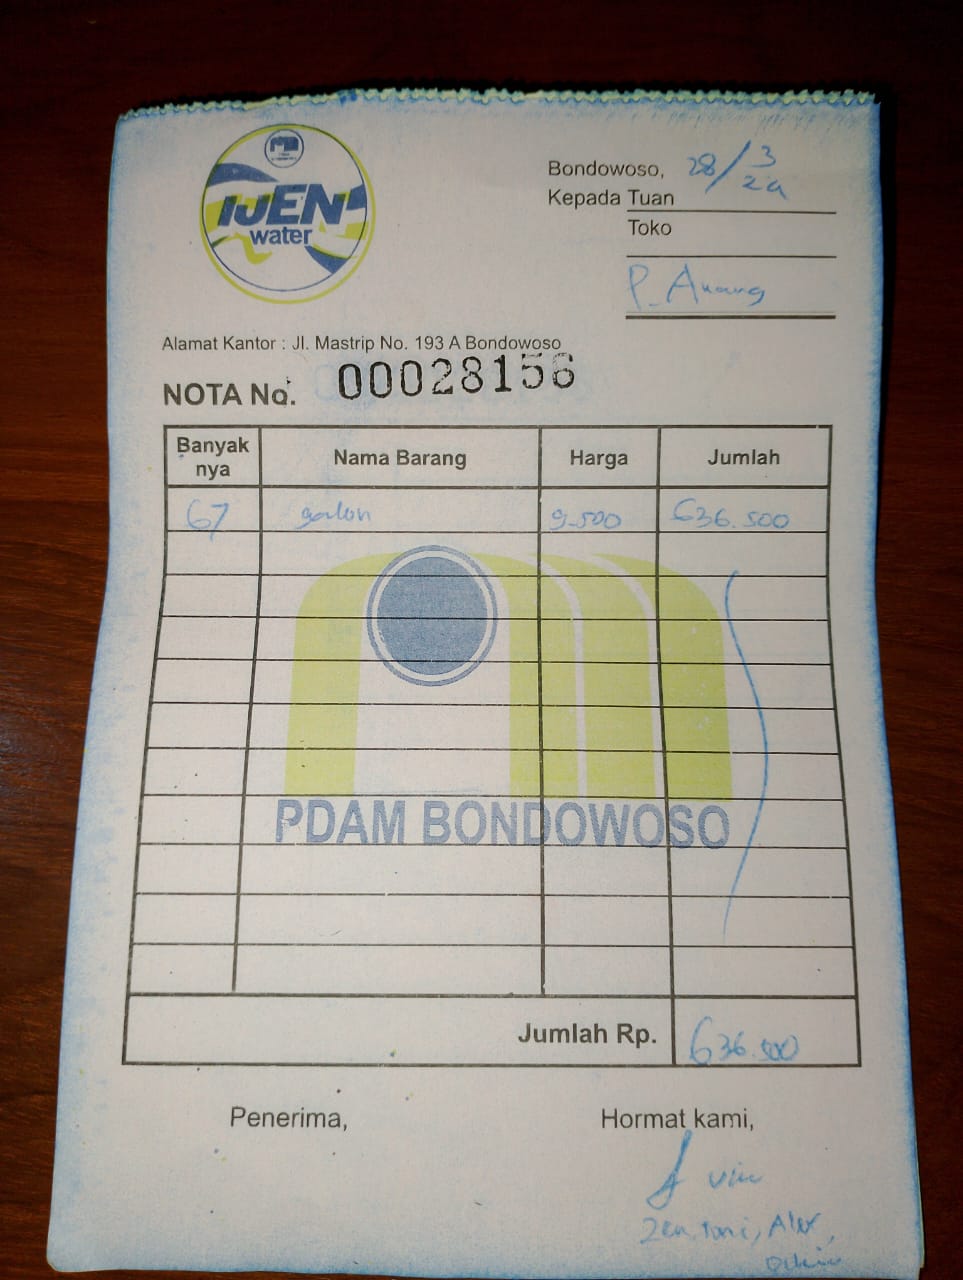 IJEN
water
Bondowoso, 28/3
Kepada Tuan
Toko
P. Anang
Alamat Kantor : Jl. Mastrip No. 193 A Bondowoso
NOTA No. 00028156
Banyak nya Nama Barang Harga Jumlah
67 galon 9.500 636.500
PDAM BONDOWOSO
Jumlah Rp. 636.500
Penerima, Hormat kami,
Zen, Toni, Alex,